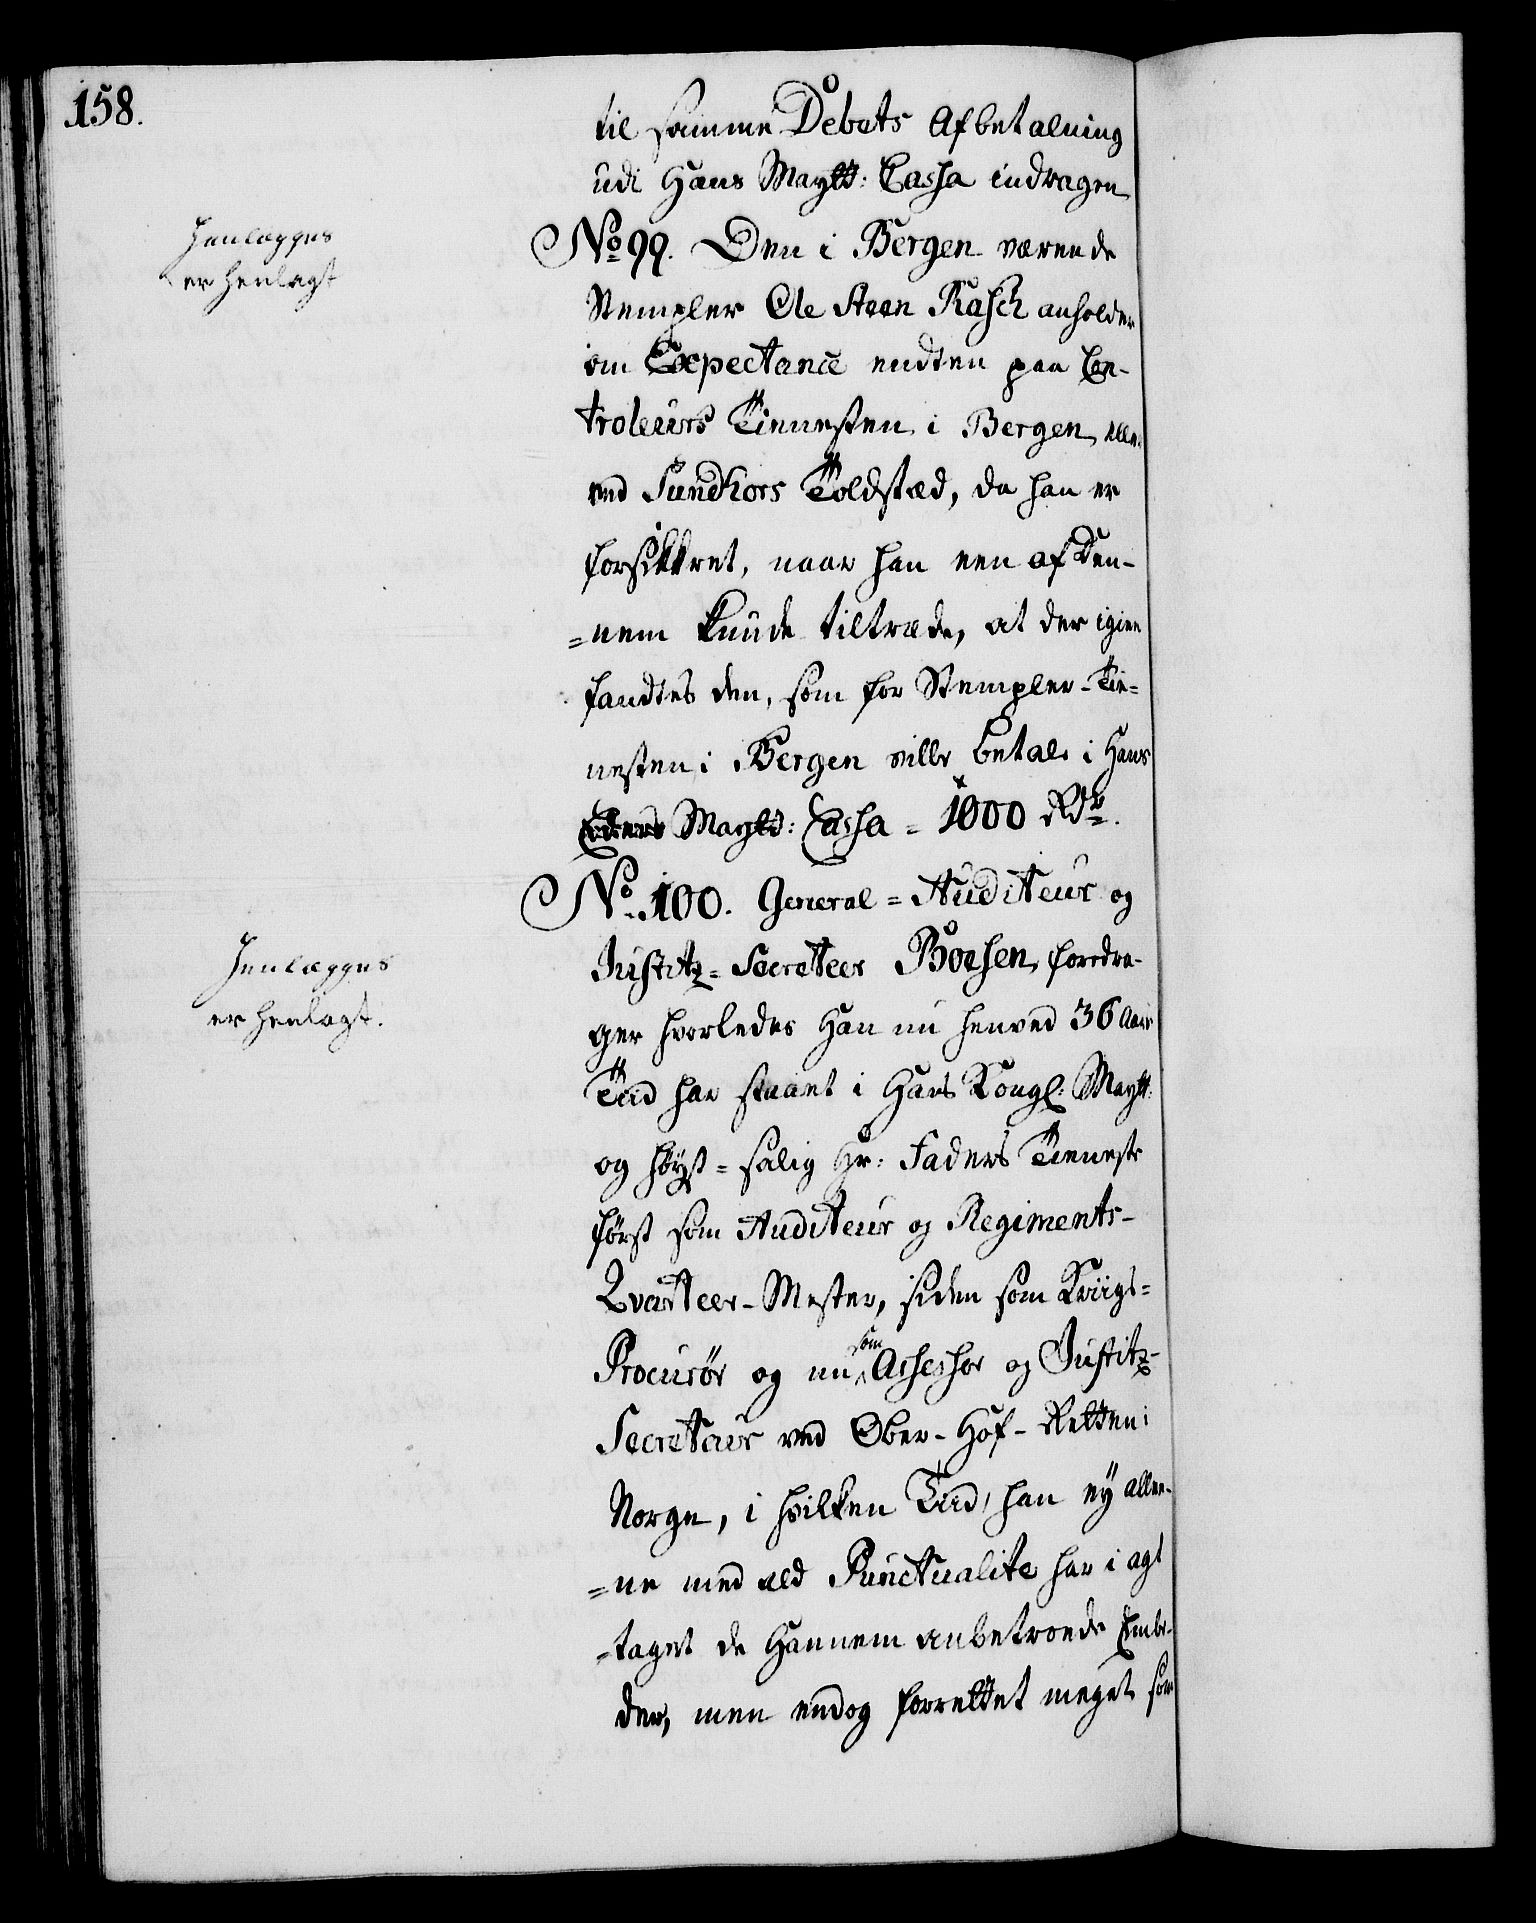 158.
til samme Debets Afbetalning
udi Hans Maytt: Cassa indragen
Henlægges
er henlagt
No 99. Den i Bergen værende
Stempler Ole Steen Rasch anholder
om Expectance endten paa Con-
troleurs Tienesten i Bergen, eller
ved Sundhors Toldsted, da han er
forsikkret, naar han een af den-
=nem kunde tiltræde, at der igien
fandtes den, som for Stempler-Tie=
nesten i Bergen ville betale i Hans
Maytt: Cassa = 1000 Rdr.
No. 100. General=Auditeur og
Henlægges
er henlagt.
Justitz=Secreteer Boesen, foredra-
ger hvorledes Han nu henved 36 Aars
Tiid har staaet i Hans Kongl: Maytt:
og høyst=salig Hr: Faders Tieneste
først som Auditeur og Regiments-
Qvarteer-Mester, siden som Kriigs=
Procurør og nu som Assessor og Justitz-
Secretair ved Ober-Hof-Retten i
Norge, i hvilken Tiid han ey allee-
=ne med ald Punctualite har i agt
=taget de Hannem anbetroede Embe-
der, men endog forrettet meget som